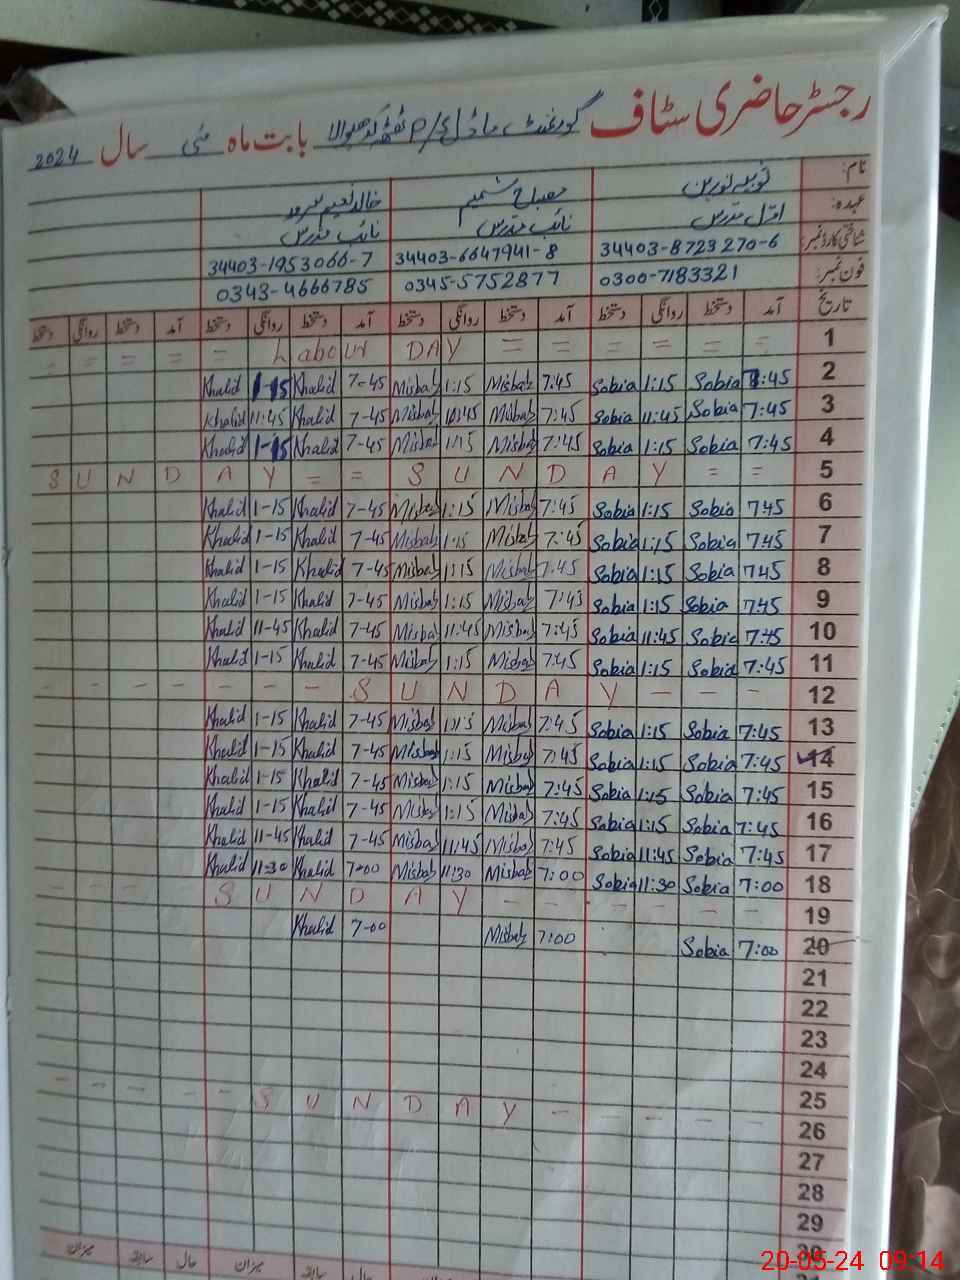 رجسٹر حاضری سٹاف گورنمنٹ ماڈل p/s بابت ماہ مئی سال 2024
نام: ثوبیہ نورین مصباح شمیم خالد نعیم سرور
عہدہ: اول مدرس نائب مدرس نائب مدرس
شناختی کارڈ نمبر: 34403-8723270-6 34403-6647941-8 34403-1953066-7
فون نمبر: 0300-7183321 0345-5752877 0343-4666785
تاریخ آمد دستخط روانگی دستخط آمد دستخط روانگی دستخط آمد دستخط روانگی دستخط آمد دستخط روانگی دستخط
= = = = = Labour DAY = = = = = = 1
Khalid 1-15 Khalid 7-45 Misbah 1:15 Misbah 7:45 Sobia 1:15 Sobia 7:45 2
Khalid 11:45 Khalid 7-45 Misbah 11:45 Misbah 7:45 Sobia 11:45 Sobia 7:45 3
Khalid 1-15 Khalid 7-45 Misbah 1:15 Misbah 7:45 Sobia 1:15 Sobia 7:45 4
S U N D A Y = = S U N D A Y = = 5
Khalid 1-15 Khalid 7-45 Misbah 1:15 Misbah 7:45 Sobia 1:15 Sobia 7:45 6
Khalid 1-15 Khalid 7-45 Misbah 1:15 Misbah 7:45 Sobia 1:15 Sobia 7:45 7
Khalid 1-15 Khalid 7-45 Misbah 1:15 Misbah 7:45 Sobia 1:15 Sobia 7:45 8
Khalid 1-15 Khalid 7-45 Misbah 1:15 Misbah 7:45 Sobia 1:15 Sobia 7:45 9
Khalid 11-45 Khalid 7-45 Misbah 11:45 Misbah 7:45 Sobia 11:45 Sobia 7:45 10
Khalid 1-15 Khalid 7-45 Misbah 1:15 Misbah 7:45 Sobia 1:15 Sobia 7:45 11
- - - - - - - S U N D A Y - - - 12
Khalid 1-15 Khalid 7-45 Misbah 1:15 Misbah 7:45 Sobia 1:15 Sobia 7:45 13
Khalid 1-15 Khalid 7-45 Misbah 1:15 Misbah 7:45 Sobia 1:15 Sobia 7:45 14
Khalid 1-15 Khalid 7-45 Misbah 1:15 Misbah 7:45 Sobia 1:15 Sobia 7:45 15
Khalid 1-15 Khalid 7-45 Misbah 1:15 Misbah 7:45 Sobia 1:15 Sobia 7:45 16
Khalid 11-45 Khalid 7-45 Misbah 11:45 Misbah 7:45 Sobia 11:45 Sobia 7:45 17
Khalid 11:30 Khalid 7-00 Misbah 11:30 Misbah 7:00 Sobia 11:30 Sobia 7:00 18
- - - - S U N D A Y - - - - - - 19
Khalid 7-00 Misbah 7:00 Sobia 7:00 20
21
22
23
24
25
- - - - - S U N D A Y - - - - - 26
27
28
29
30
میزان سابقہ حال میزان سابقہ حال
20-05-24 09:14